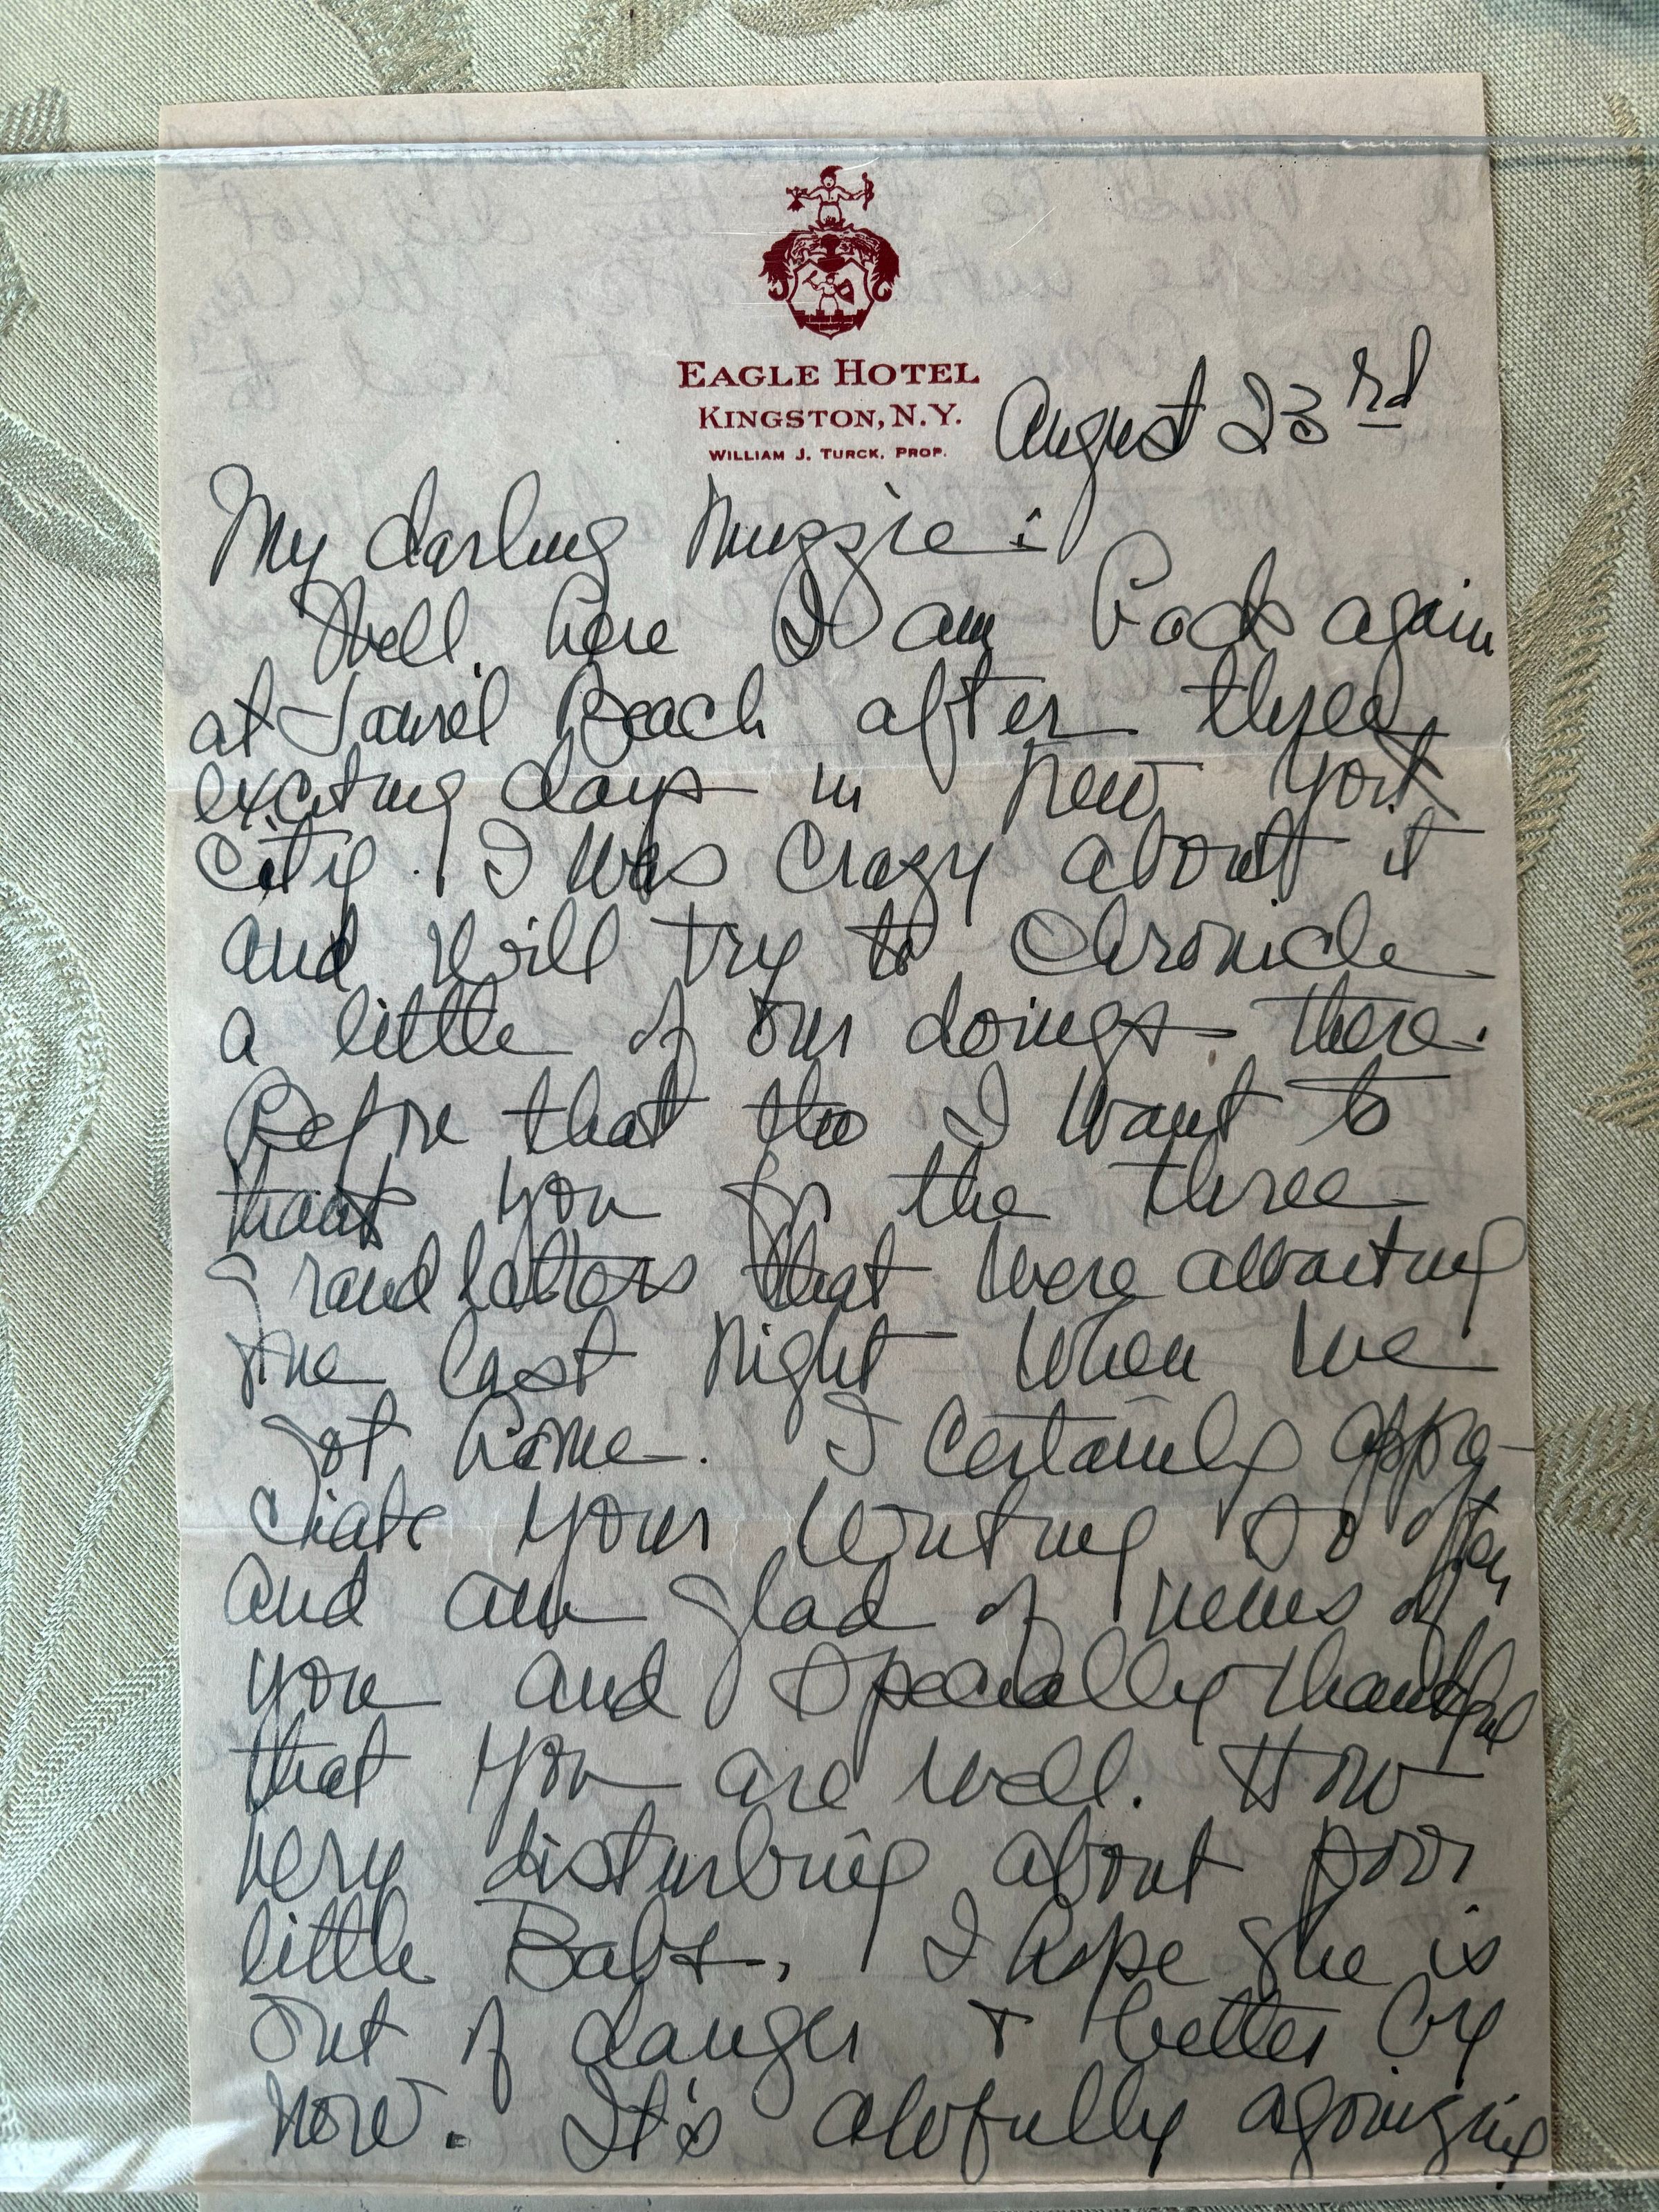 EAGLE HOTEL
KINGSTON, N.Y.
WILLIAM J. TURCK, PROP.
August 23rd
My darling Muzzie:
Well, here I am back again
at Laurel Beach after three
exciting days in New York
City. I was crazy about it
and will try to chronicle
a little of our doings there.
Before that tho I want to
thank you for the three
grand letters that were awaiting
me last night when we
got home. I certainly appre-
ciate your writing so often
and am glad of news of
you and specially thankful
that you are well. How
very disturbing about poor
little Babs. I hope she is
out of danger & better by
now. It's awfully agonizing